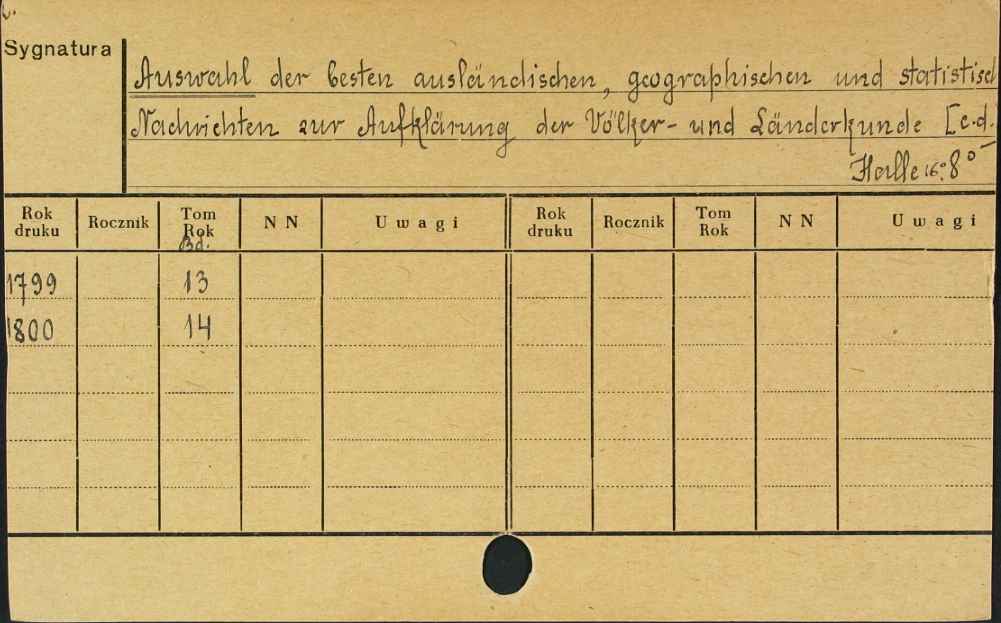 Sygnatura
Auswahl der besten ausländischen, geographischen und statistisch
Nachrichten zur Aufklärung der Völker- und Länderkunde [e.d.
Halle 16°: 8°
Rok druku Rocznik Tom Rok NN Uwagi Rok druku Rocznik Tom Rok NN Uwagi
Bd.
1799 13
1800 14